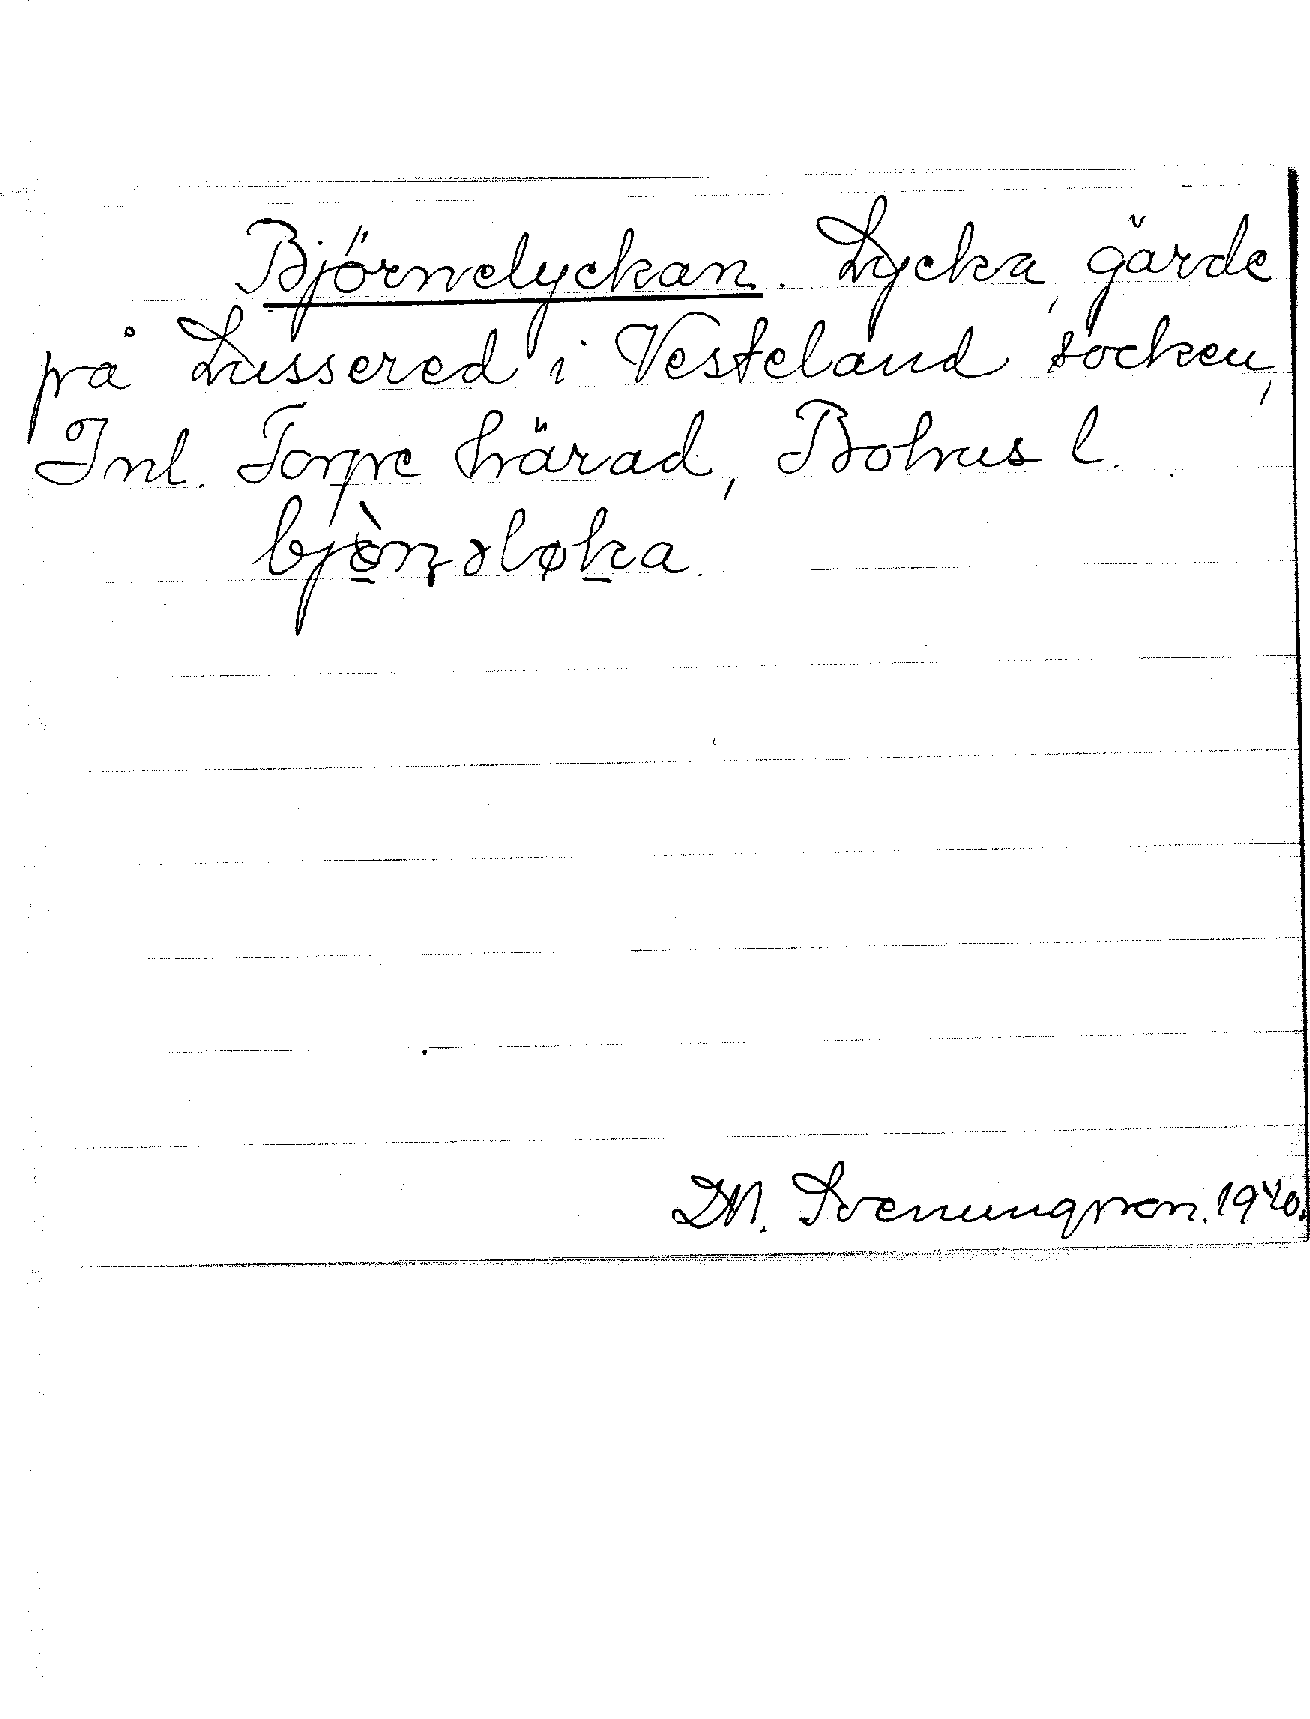 Björnelyckan. Lycka, gärde
på Lussered i Vesteland socken,
Inl. Torpe härad, Bohus l.
bjɵ̀ṇəløka.
D.N. Svenungsson. 1940.